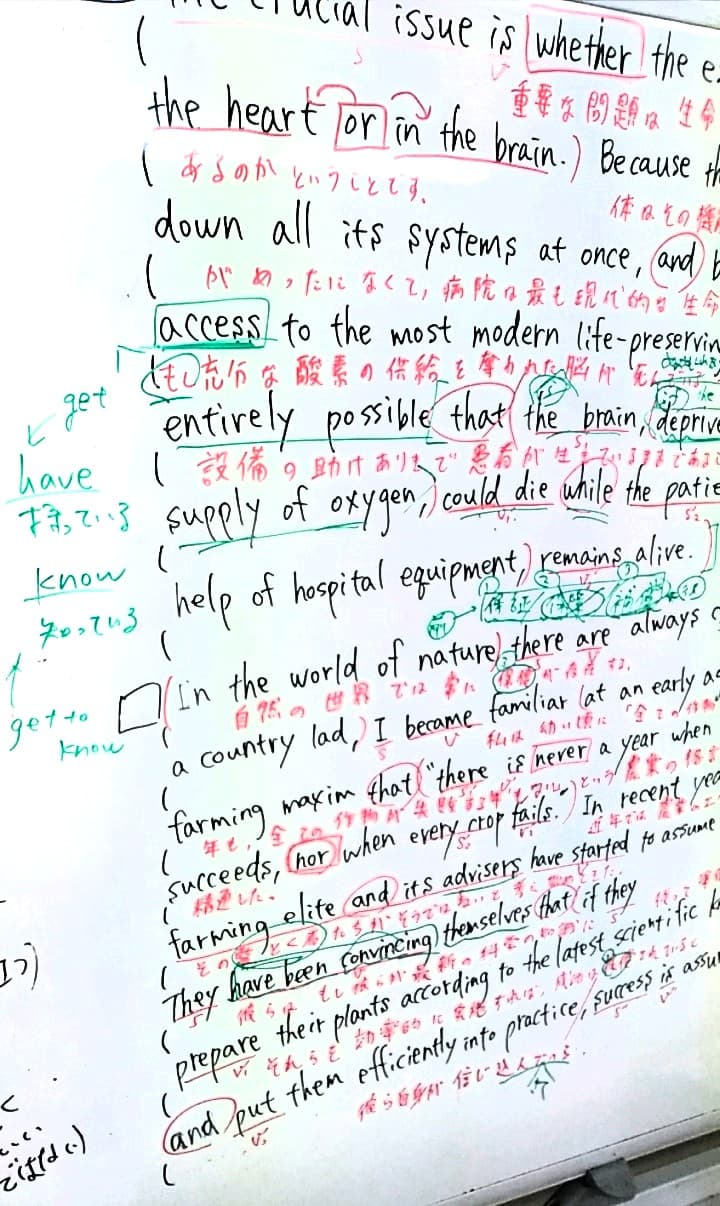 crucial issue is whether the
重要な問題は 生命
the heart or in the brain.) Because
あるのか ということです。
体はその機
down all its systems at once, and
がめったになくて, 病院は最も現代的な生命
access to the most modern life-preservin
もし充分な酸素の供給を奪われた脳が
get
entirely possible that the brain, deprive
have
設備の助けありきで患者が
持っている
supply of oxygen, could die while the patie
know
help of hospital equipment, remains alive.
知っている
保証
In the world of nature, there are always
自然の世界では常に 保健が存在する。
get to know
a country lad, I became familiar at an early a
私は幼い頃に「全ての作物
farming maxim that "there is never a year when
年も、全ての作物が失敗する年もない」という農業の格言
succeeds, nor when every crop fails." In recent yea
精通した。
近年では農業
farming elite and its advisers have started to assume
They have been convincing themselves that if they
彼らは もし彼らが最新の科学の知識に
prepare their plants according to the latest scientific k
それらを効率的に実施すれば、成功は
and put them efficiently into practice, success is assu
彼ら自身が信じ込んでいる.